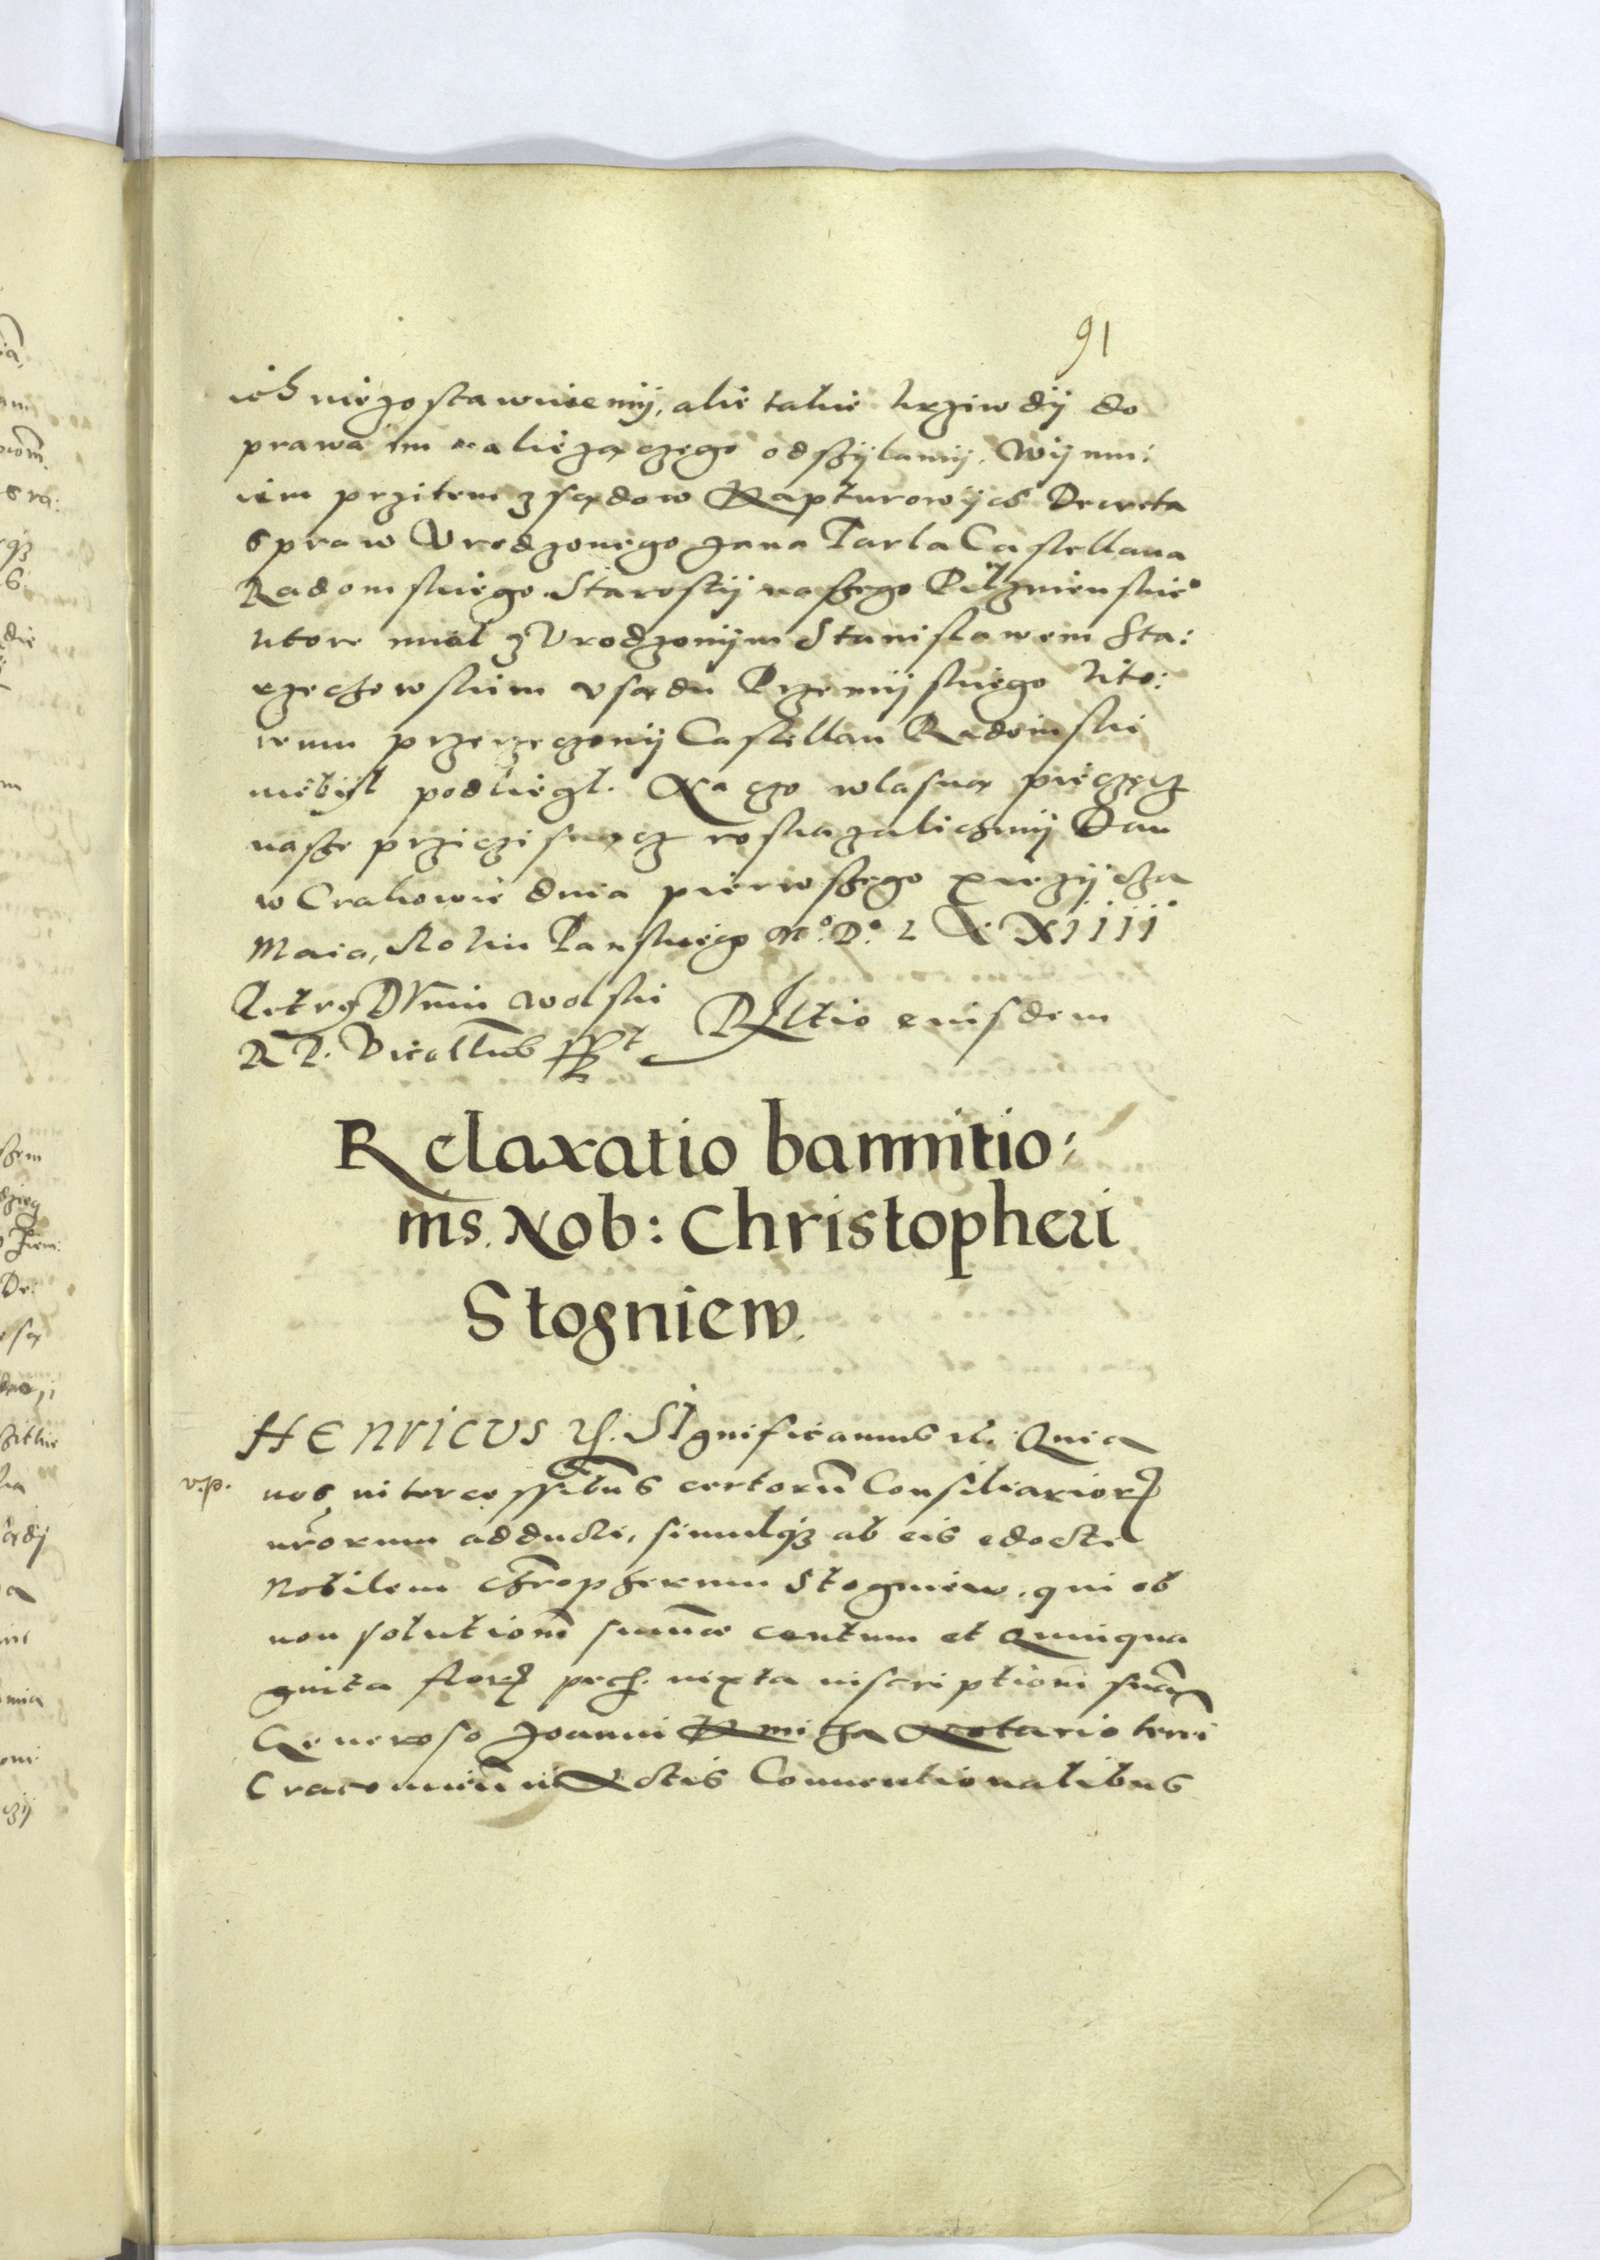 91
ich niezostawuiemÿ, alie takie krziwdÿ do
prawa im nalieżączego odsżÿlamÿ. Wÿnmi:
iem przitem z sądow Kapturowÿch Decreta
spraw Vrodzonego Jana Tarla Castellana
Radomskiego Starostÿ naszego Pilznienskie°
ktore miał z Vrodzonÿm Stanisławem Sta:
rzechowskim v sądu Przemÿskiego kto:
remu przerzeczonÿ Castellan Radomski
niebÿl podliegł. Na czo własną pieczęcz
nasze prziczisnącz roskazalichmÿ Dan
w Crakowie dnia pierwszego xiezÿcza
Maia, Roku Panskiego M°. D°. LXXIIII°
Petrg Dunin Wolski
R P. Vicecellrius sspt Rltio eiusdem
Relaxatio bannitio:
nis. Nob: Christopheri
Stogniew.
HENRICUS etc. Significamus etc. Quia
v.p.
nos intercessionibus certorum Consiliarior
nrorum adducti, simulqz ab eis edocti
Nobilem Chropherum Stogniew. qui ob
non solutiom summæ centum et Quinqua
ginta flor pech. iuxta inscriptiom suam
Generoso Joanni Kmitha Notario terri
Cracouien in Actis Conuentionalibus